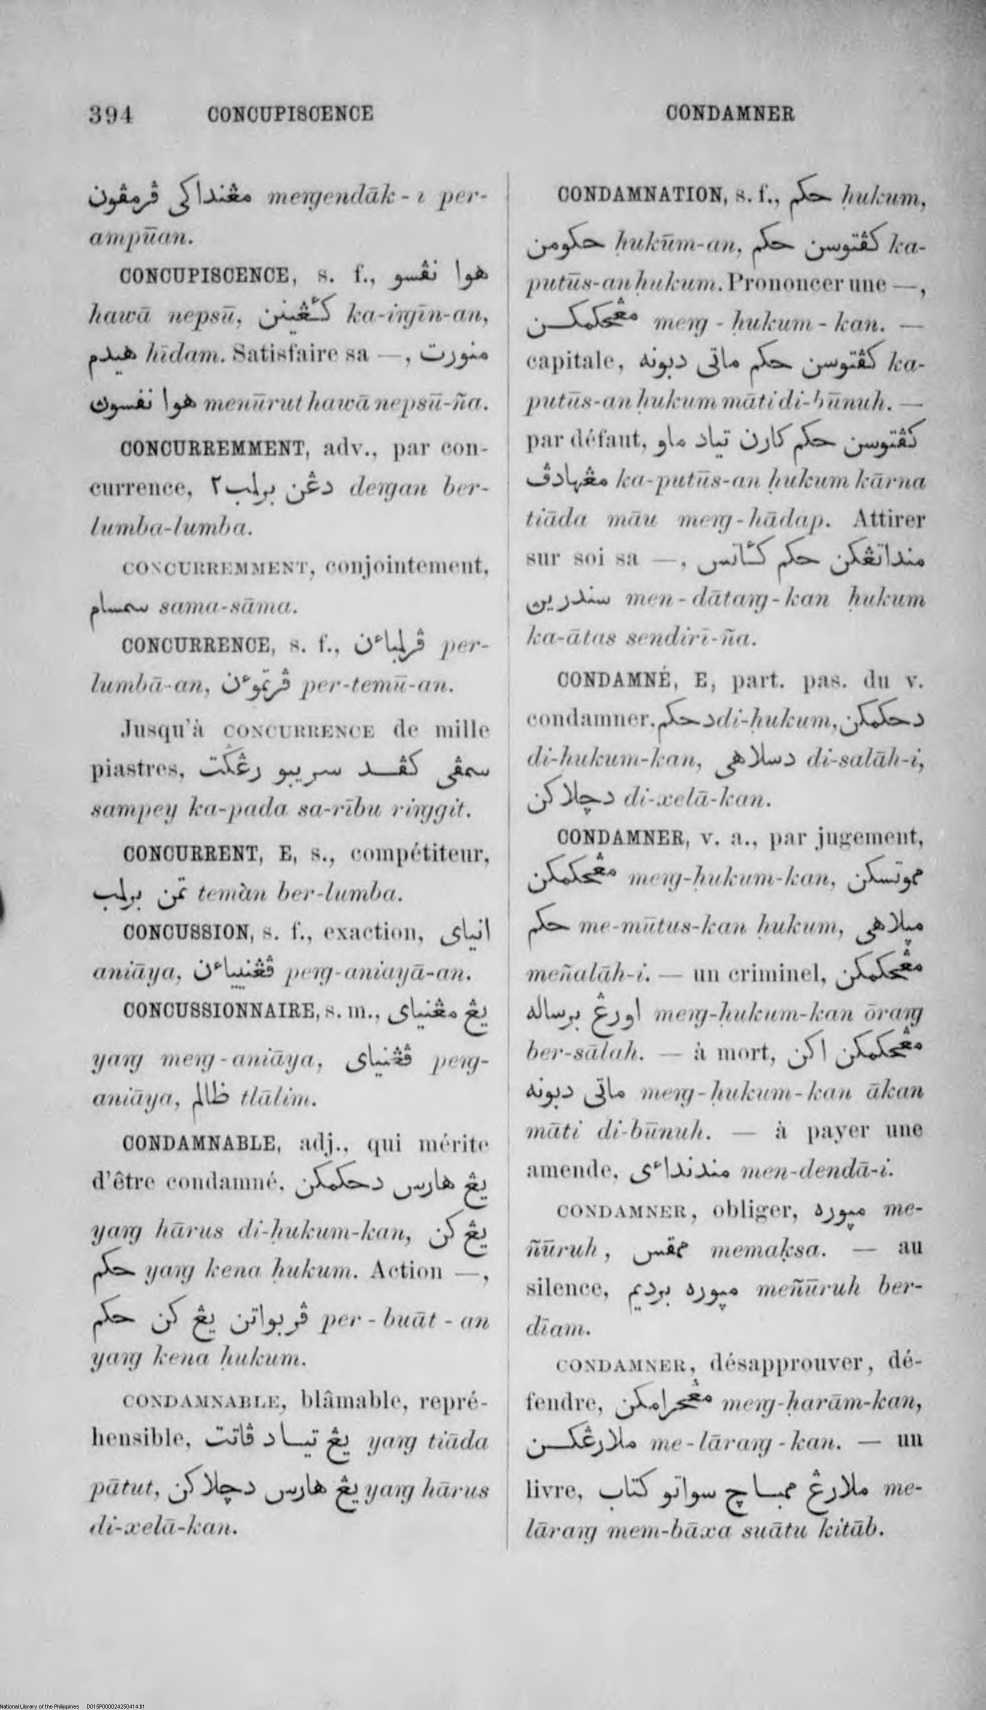 394 CONCUPISCENCE CONDAMNER
مڠنداكى ڤرمڤون meṅgendāk-ī per-
ampūan.
CONCUPISCENCE, s. f., هوا نڤسو
hawā nepsū, كٔڠينن ka-iṅgīn-an,
هيدم hīdam. Satisfaire sa —, منورت
هوا نفسوڽ menūrut hawā nepsū-ña.
CONCURREMMENT, adv., par con-
currence, دڠن برلمب٢ deṅgan ber-
lumba-lumba.
CONCURREMMENT, conjointement,
سمسام sama-sāma.
CONCURRENCE, s. f., ڤرلمباءن per-
lumbā-an, ڤرتموءن per-temū-an.
Jusqu'à CONCURRENCE de mille
piastres, سمڤى كڤد سريبو رڠكت
sampey ka-pada sa-rību riṅggit.
CONCURRENT, E, s., compétiteur,
تمن برلمب temàn ber-lumba.
CONCUSSION, s. f., exaction, انياى
aniāya, ڤڠنياءن peṅg-aniayā-an.
CONCUSSIONNAIRE, s. m., يڠ مڠنياى
yaṅg meṅg-aniāya, ڤڠنياى peṅg-
aniāya, ظالم tlālim.
CONDAMNABLE, adj., qui mérite
d'être condamné, يڠ هارس دحكمكن
yaṅg hārus di-ḥukum-kan, يڠ كن
حكم yaṅg kena ḥukum. Action —,
ڤربواتن يڠ كن حكم per-buāt-an
yaṅg kena ḥukum.
CONDAMNABLE, blâmable, repré-
hensible, يڠ تياد ڤاتت yaṅg tiāda
pātut, يڠ هارس دچلاكن yaṅg hārus
di-xelā-kan.
CONDAMNATION, s. f., حكم ḥukum,
حكومن ḥukūm-an, كڤتوسن حكم ka-
putūs-an ḥukum. Prononcer une —,
مڠحكمكن meṅg-ḥukum-kan. —
capitale, كڤتوسن حكم ماتى دبونه ka-
putūs-an ḥukum māti di-būnuh. —
par défaut, كڤتوسن حكم كارن تياد ماو
مڠهادڤ ka-putūs-an ḥukum kārna
tiāda māu meṅg-hādap. Attirer
sur soi sa —, منداتڠكن حكم كٔاتس
سنديرين men-dātaṅg-kan ḥukum
ka-ātas sendirī-ña.
CONDAMNÉ, E, part. pas. du v.
condamner, دحكم di-ḥukum, دحكمكن
di-ḥukum-kan, دسلاهى di-salāh-i,
دچلاكن di-xelā-kan.
CONDAMNER, v. a., par jugement,
مڠحكمكن meṅg-ḥukum-kan, موتسكن
حكم me-mūtus-kan ḥukum, مڽلاهى
meñalāh-i. — un criminel, مڠحكمكن
اورڠ برساله meṅg-ḥukum-kan ōraṅg
ber-sālah. — à mort, مڠحكمكن اكن
ماتى دبونه meṅg-ḥukum-kan ākan
māti di-būnuh. — à payer une
amende, مندنداءى men-dendā-i.
CONDAMNER, obliger, مڽوره me-
ñūruh, ممقس memaḳsa. — au
silence, مڽوره برديم meñūruh ber-
dīam.
CONDAMNER, désapprouver, dé-
fendre, مڠحرامكن meṅg-ḥarām-kan,
ملارڠكن me-lāraṅg-kan. — un
livre, ملارڠ ممباچ سواتو كتاب me-
lāraṅg mem-bāxa suātu kitāb.
National Library of the Philippines